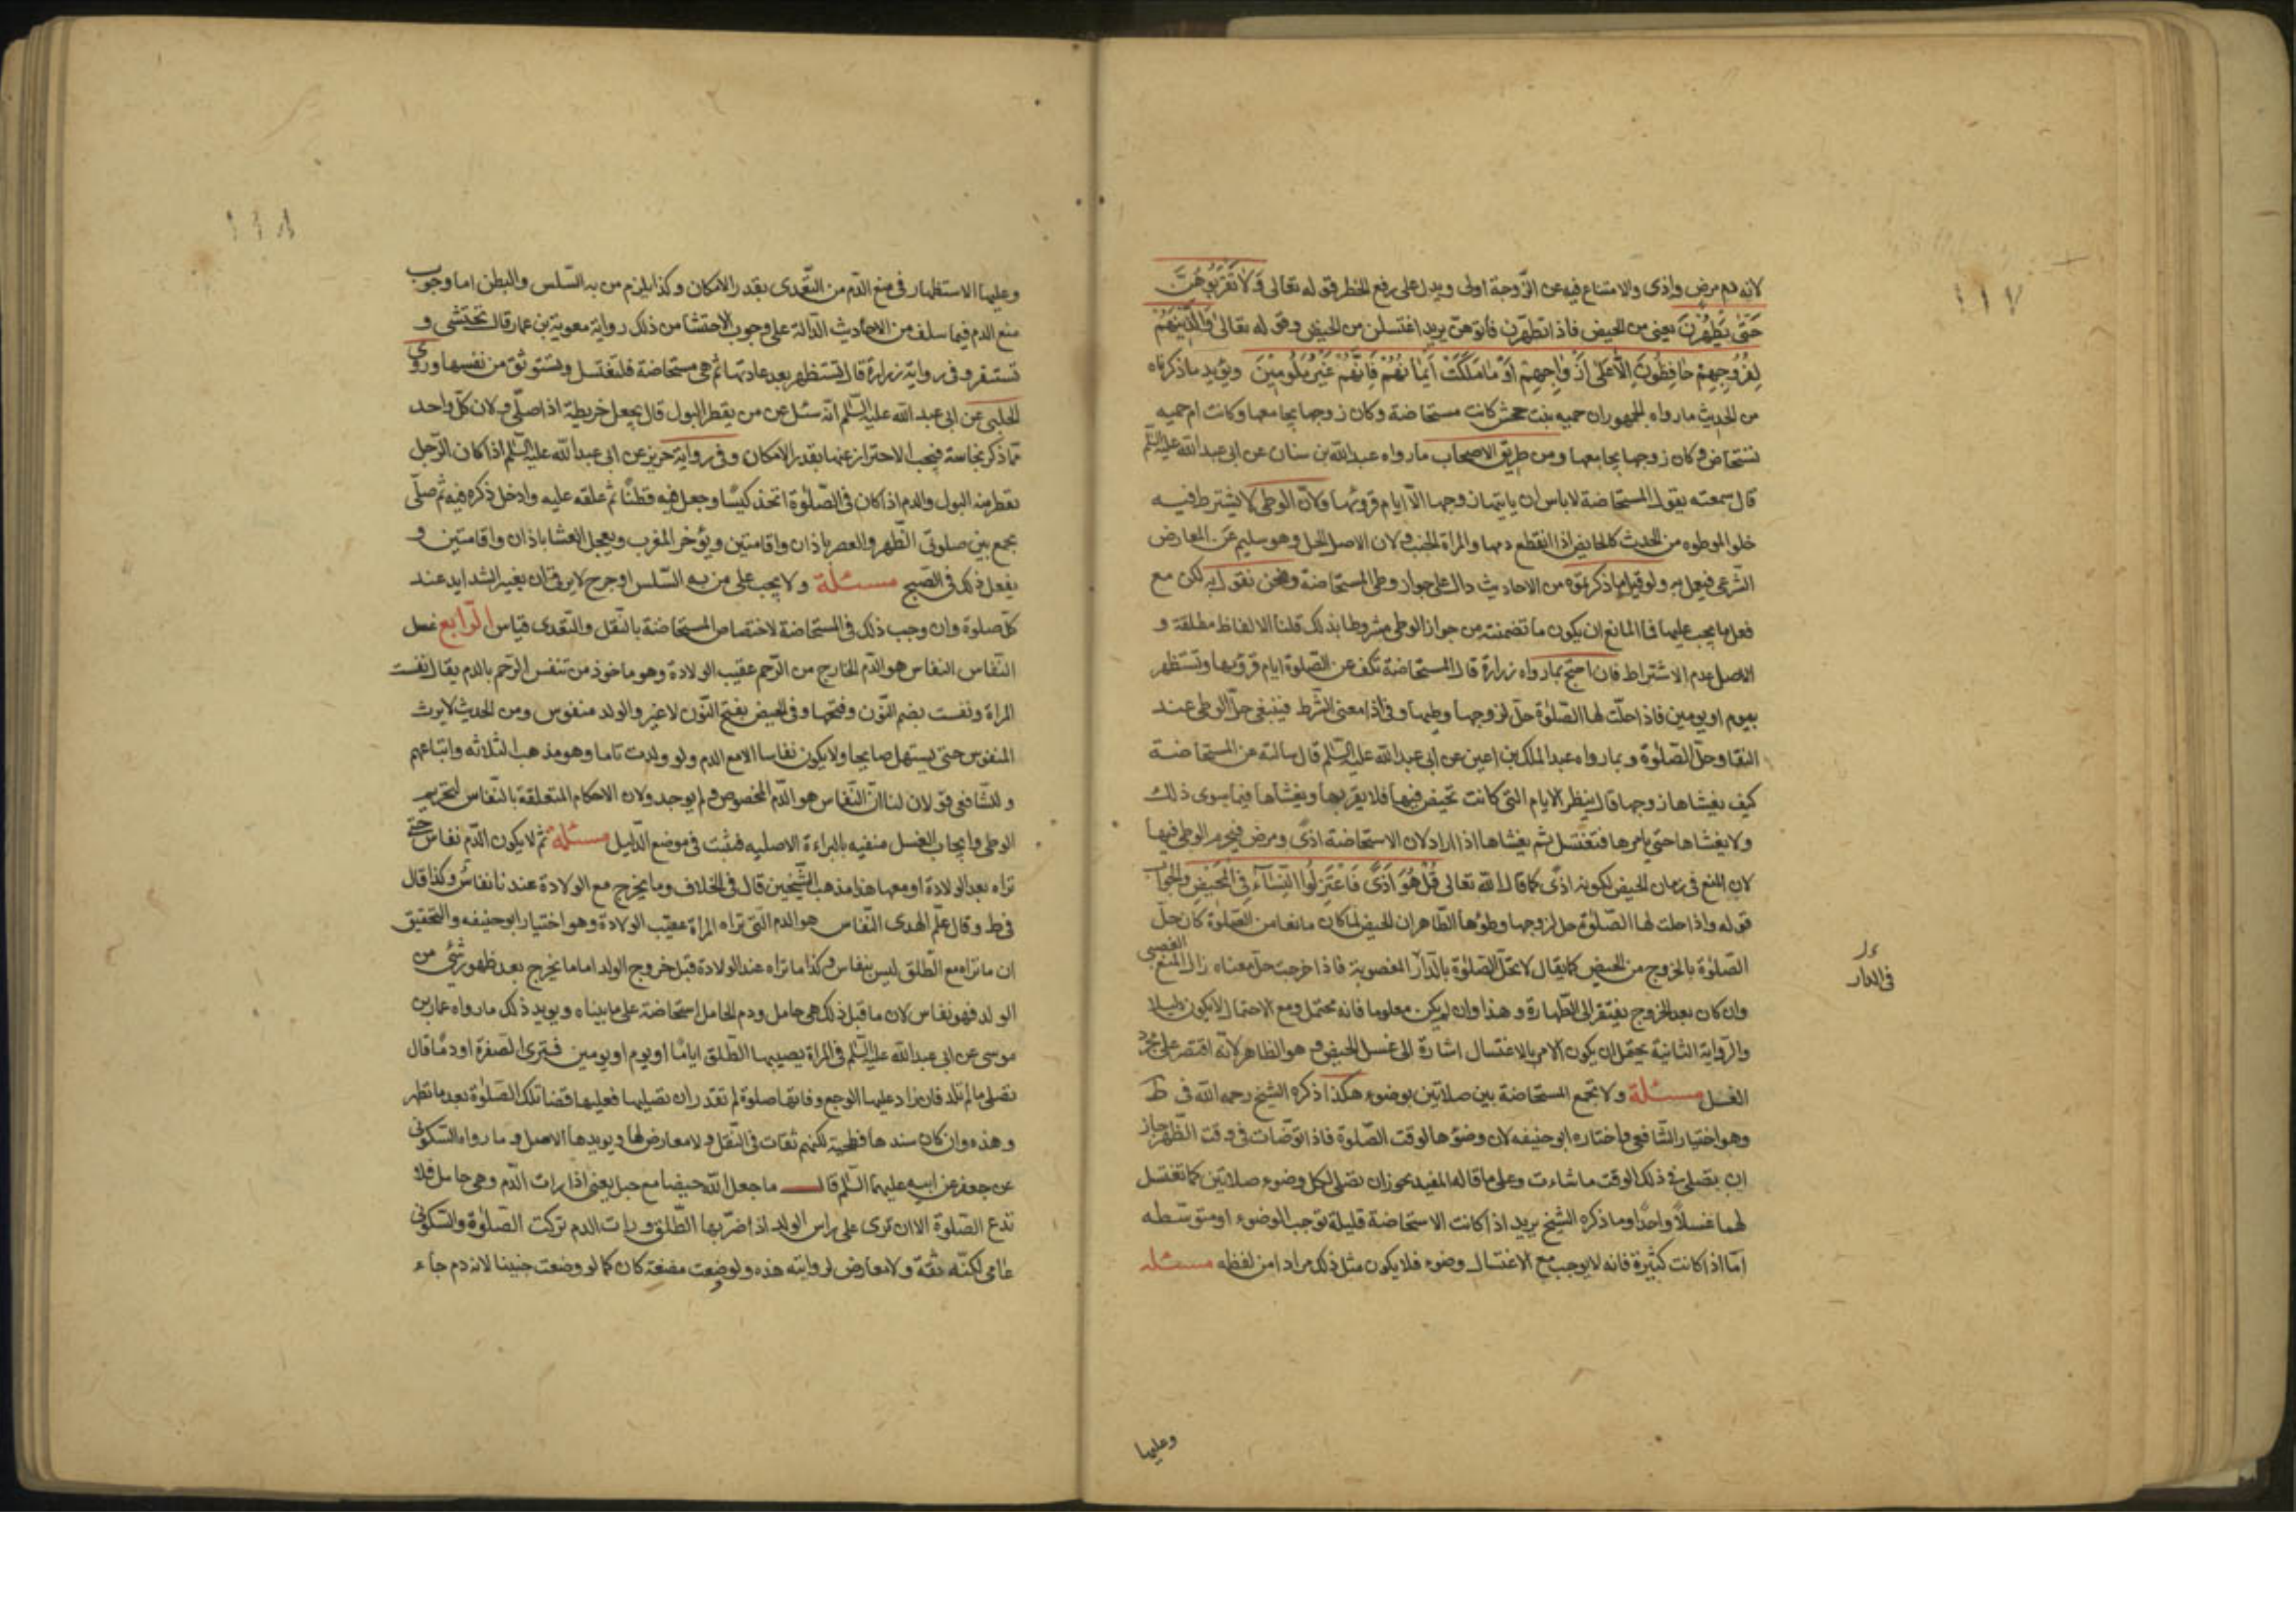 ١١٧
لانه دم مرض واذى والامتناع فيه عن الزوجة اولى ويدل على رفع الخطر قوله تعالى وَلاٰ تَقْرَبُوهُنَّ
حَتّٰى يَطْهُرْنَ يعنى من الحيض فاذا تطهّرن فاتوهنّ يريد اغتسلن من الحيض وقوله تعالى وَالَّذِينَ هُمْ
لِفُرُوجِهِمْ حٰافِظُونَ اِلاّٰ عَلىٰ اَزْوٰاجِهِمْ اَوْ مٰا مَلَكَتْ اَيْمٰانُهُمْ فَاِنَّهُمْ غَيْرُ مَلُومِيْنَ ويؤيد ما ذكرناه
من الحديث ما رواه الجمهور ان حميه بنت جحش كانت مستحاضة وكان زوجها يجامعها وكانت ام حميه
تستحاض وكان زوجها يجامعها ومن طريق الاصحاب ما رواه عبد الله بن سنان عن ابى عبد الله عليه السّلم
قال سمعته يقول المستحاضة لا باس ان ياتيها زوجها الّا ايام قروئها ولانّ الوطى لا يشترط فيه
خلو الموطوه من الحدث كالحايض اذا انقطع دمها والمراة الجنب ولان الاصل الحل وهو سليم عن المعارض
الشرعى فيعمل به ولو قيل ما ذكرتموه من الاحاديث دال على جواز وطى المستحاضة ونحن نقول به لكن مع
فعل ما يجب عليها فما المانع ان يكون ما تضمنته من جواز الوطى مشروطا بذلك قلنا الالفاظ مطلقة و
الاصل عدم الاشتراط فان احتج بما رواه زرارة قال المستحاضة تكف عن الصلوة ايام قروئها وتستظهر
بيوم او يومين فاذا حلّت لها الصّلوة حلّ لزوجها وطيها وفى اذا معنى الشرط فينبغى حلّ الوطى عند
النقا وحلّ الصّلوة وبما رواه عبد الملك بن اعين عن ابى عبد الله عليه السّلم قال سالته عن المستحاضة
كيف يغشاها زوجها قال ينظر الايام التى كانت تحيض فيها فلا يقربها ويغشاها فيما سوى ذلك
ولا يغشاها حتى يامرها فتغتسل ثم يغشاها اذا اراد لان الاستحاضة اذى ومرض فيحرم الوطى فيها
لان المنع فى زمان الحيض لكونه اذى كما قال الله تعالى قُلْ هُوَ اَذًى فَاعْتَزِلُوا النِّسٰاءَ فِى الْمَحيضِ والجواب
قوله واذا حلت لها الصّلوة حل لزوجها وطؤها الظاهر ان الحيض لما كان مانعا من الصلوة كان حلّ
الصّلوة بالخروج من الحيض كما يقال لا تحلّ الصّلوة بالدار المغصوبة فاذا خرجت حلّ معناه زال المنع الغصبى
فى الدار
وان كان بعد الخروج يفتقر الى الطهارة وهذا وان لم يكن معلوما فانه محتمل ومع الاحتمال لا يكون دليلا
والرّواية الثانية يحتمل ان يكون الامر بالاغتسال اشارة الى غسل الحيض وهو الظاهر لانه اقتصر على مجرد
الغسل مسئلة ولا تجمع المستحاضة بين صلاتين بوضوء هكذا ذكره الشيخ رحمه الله فى ط
وهو اختيار الشّافعى واختاره ابو حنيفه لان وضؤها لوقت الصّلوة فاذا توضّات فى وقت الظهر جاز
ان يصلى فى ذلك الوقت ما شاءت وعلى ما قاله المفيد يجوز ان تصلى لكل وضوء صلاتين كما تغتسل
لهما غسلًا واحدًا وما ذكره الشيخ يريد اذا كانت الاستحاضة قليلة توجب الوضوء او متوسّطه
امّا اذا كانت كثيرة فانه لا يوجب مع الاغتسال وضوء فلا يكون مثل ذلك مرادا من لفظه مسئله
وعليها
١١٨
وعليها الاستظهار فى منع الدّم من التّعدى بقدر الامكان وكذا يلزم من به السّلس والبطن اما وجوب
منع الدم فيما سلف من الاحاديث الدّالة على وجوب الاحتشا من ذلك رواية معوية بن عمار قال تحتشى و
تستثفر وفى رواية زرارة قال تستظهر بعد عادتها ثم هى مستحاضة فلتغتسل وتستوثق من نفسها وروى
الحلبى عن ابى عبد الله عليه السّلم انّه سئل عن من يقطر البول قال يجعل خريطة اذا صلّى ولان كلّ واحد
مما ذكر نجاسة فيجب الاحتراز عنها بقدر الامكان وفى رواية حريز عن ابى عبد الله عليه السّلم اذا كان الرّجل
تقطر منه البول والدم اذا كان فى الصّلوة اتخذ كيسًا وجعل فيه قطنًا ثم علقه عليه وادخل ذكره فيه ثم صلّى
يجمع بين صلوتى الظّهر والعصر باذان واقامتين ويؤخر المغرب ويعجل العشا باذان واقامتين و
يفعل ذلك فى الصبح مسئلة ولا يجب على من به السّلس او جرح لا يرقا ان يغير الشدايد عند
كلّ صلوة وان وجب ذلك فى المستحاضة لاختصاص المستحاضة بالنّقل والتّعدى قياس الرّابع غسل
النّفاس النفاس هو الدّم الخارج من الرّحم عقيب الولادة وهو ماخوذ من تنفس الرّحم بالدم يقال نفست
المراة ونفست بضم النّون وفتحها وفى الحيض بفتح النّون لا غير والولد منفوس ومن الحديث لا يرث
المنفوس حتى يستهل صايحا ولا يكون نفاسا الا مع الدم ولو ولدت تاما وهو مذهب الثلاثه واتباعهم
وللشّافعى قولان لنا انّ النّفاس هو الدّم المخصوص ولم يوجد ولان الاحكام المتعلقة بالنّفاس لتحريم
الوطى وايجاب الغسل منفيه بالبراءة الاصليه فيثبت فى موضع الدّليل مسئلة ثم لا يكون الدّم نفاس حتى
تراه بعد الولادة او معها هذا مذهب الشّيخين قال فى الخلاف وما يخرج مع الولادة عندنا نفاس وكذا قال
فى ط وقال علم الهدى النّفاس هو الدم التى تراه المراة عقيب الولادة وهو اختيار ابو حنيفه والتحقيق
ان ما تراه مع الطّلق ليس بنفاس وكذا ما تراه عند الولادة قبل خروج الولد اما ما يخرج بعد ظهور شئ من
الولد فهو نفاس لان ما قبل ذلك هى حامل ودم الحامل استحاضة على ما بيناه ويويد ذلك ما رواه عمار بن
موسى عن ابى عبد الله عليه السّلم فى المراة يصيبها الطّلق ايامًا او يوم او يومين فترى الصفرة او دمًا قال
تصلى ما لم تلد فان زاد عليها الوجع وفاتها صلوة لم تقدر ان تصليها فعليها قضا تلك الصّلوة بعد ما تطهر
وهذه وان كان سندها فطحية لكنهم ثقات فى النّقل ولا معارض لها ويويدها الاصل وما رواه السّكونى
عن جعفر عن ابيه عليهما السّلم قال ما جعل الله حيضا مع حبل يعنى اذا رات الدّم وهى حامل فلا
تدع الصّلوة الا ان ترى على راس الولد اذا ضرّبها الطّلق ورات الدم تركت الصّلوة والسّكونى
عامى لكنّه ثقة ولا معارض لروايته هذه ولو وضعت مضغة كان كما لو وضعت جنينا لانه دم جاء